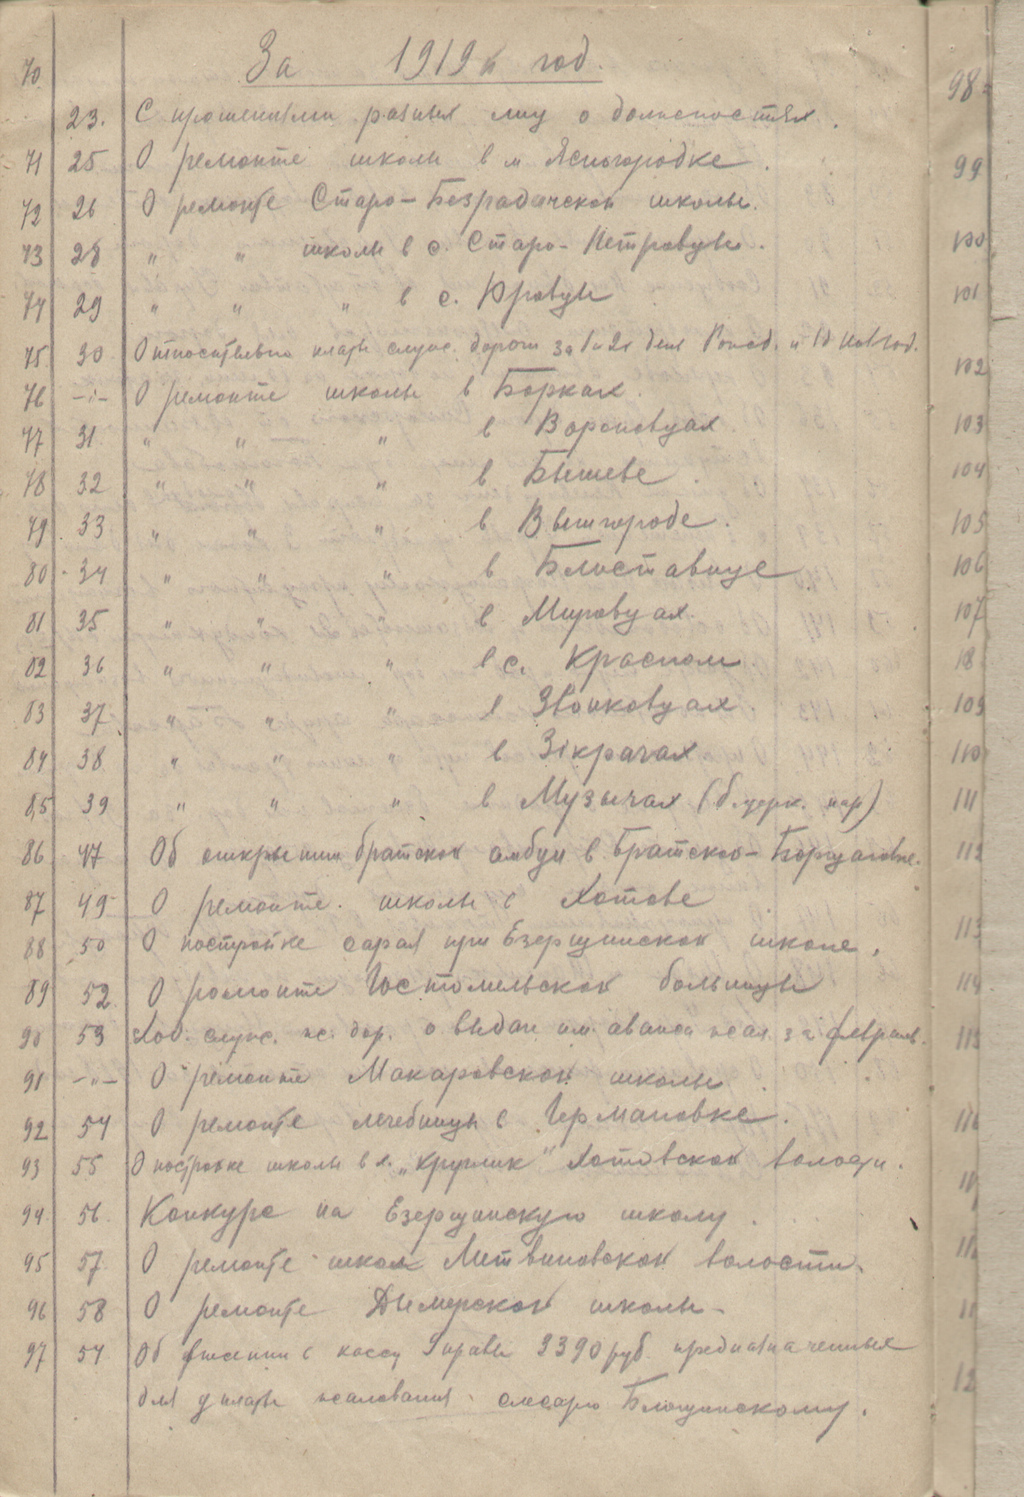 За 1919й год.
70 23. С прошениями разных лиц о должностях.
71 25 О ремонте школы в м Ясногородке.
72 26 О ремонте Старо-Безрадичской школы.
73 28 " " школы в с. Старо-Петровцы.
74 29 " " " в с. Юровцы
75 30 Относительно платы служ. дороги за 1 и 2й день Рожд. и 1й нов. год.
76 -"- О ремонте школы в Борках.
77 31 " " " в Вороновцах
78 32 " " " в Бышеве.
79 33 " " " в Вышгороде.
80 34 " " " в Блиставице
81 35 " " " в Мировцах
82 36 " " " в с. Красном
83 37 " " " в Звонковцах.
84 38 " " " в Зікрачах
85 39 " " " в Музычах (б. церк. пар)
86 47 Об открытии братской в Братско-Борщаговке.
87 49 О ремонте школы в Хотове
88 50 О постройке сарая при Езерщинской школе.
89 52 О ремонте Гостомельской больницы
90 53 Ход. служ. ж. дор. о выдаче им аванса жал. за февраль.
91 -"- О ремонте Макаровской школы
92 54 О ремонте лечебницы в Германовке.
93 55 О постройке школы в х. "Круглик" Хотовской волости.
94 56 Конкурс на Езерщинскую школу.
95 57 О ремонте школ Литвиновской волости.
96 58 О ремонте Дымерской школы.
97 59 Об внесении в кассу Управы 3390 руб. предназначенных
для уплаты жалования слесарю Блощинскому.
98
99
100
101
102
103
104
105
106
107
18
109
110
111
112
113
114
115
116
11
11
11
12